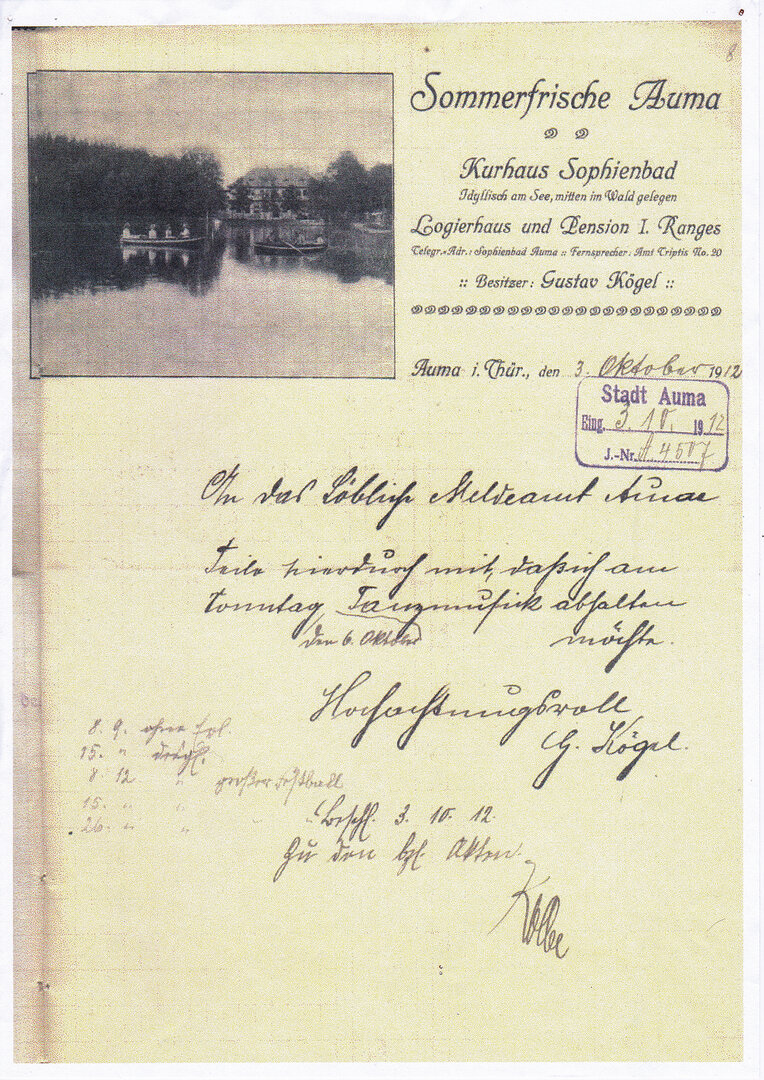 8
Sommerfrische Auma
Kurhaus Sophienbad
Idyllisch am See, mitten im Wald gelegen
Logierhaus und Pension I. Ranges
Telegr.-Adr.: Sophienbad Auma :: Fernsprecher: Amt Triptis No. 20
:: Besitzer: Gustav Kögel ::
Auma i. Thür., den 3. Oktober 1912
Stadt Auma
Eing. 3. 10. 1912
J.-Nr. A 4507
An das Löbliche Meldeamt Auma
Teile hierdurch mit, daß ich am
Sonntag Tanzmusick abhalten
den 6. Oktober möchte.
Hochachtungsvoll
G. Kögel.
8. 9. ohne
15. " desgl.
8. 12 " großer Festball
15. " "
26. " "
Beschl. 3. 10. 12.
Zu den bzl. Akten.
Kolbe